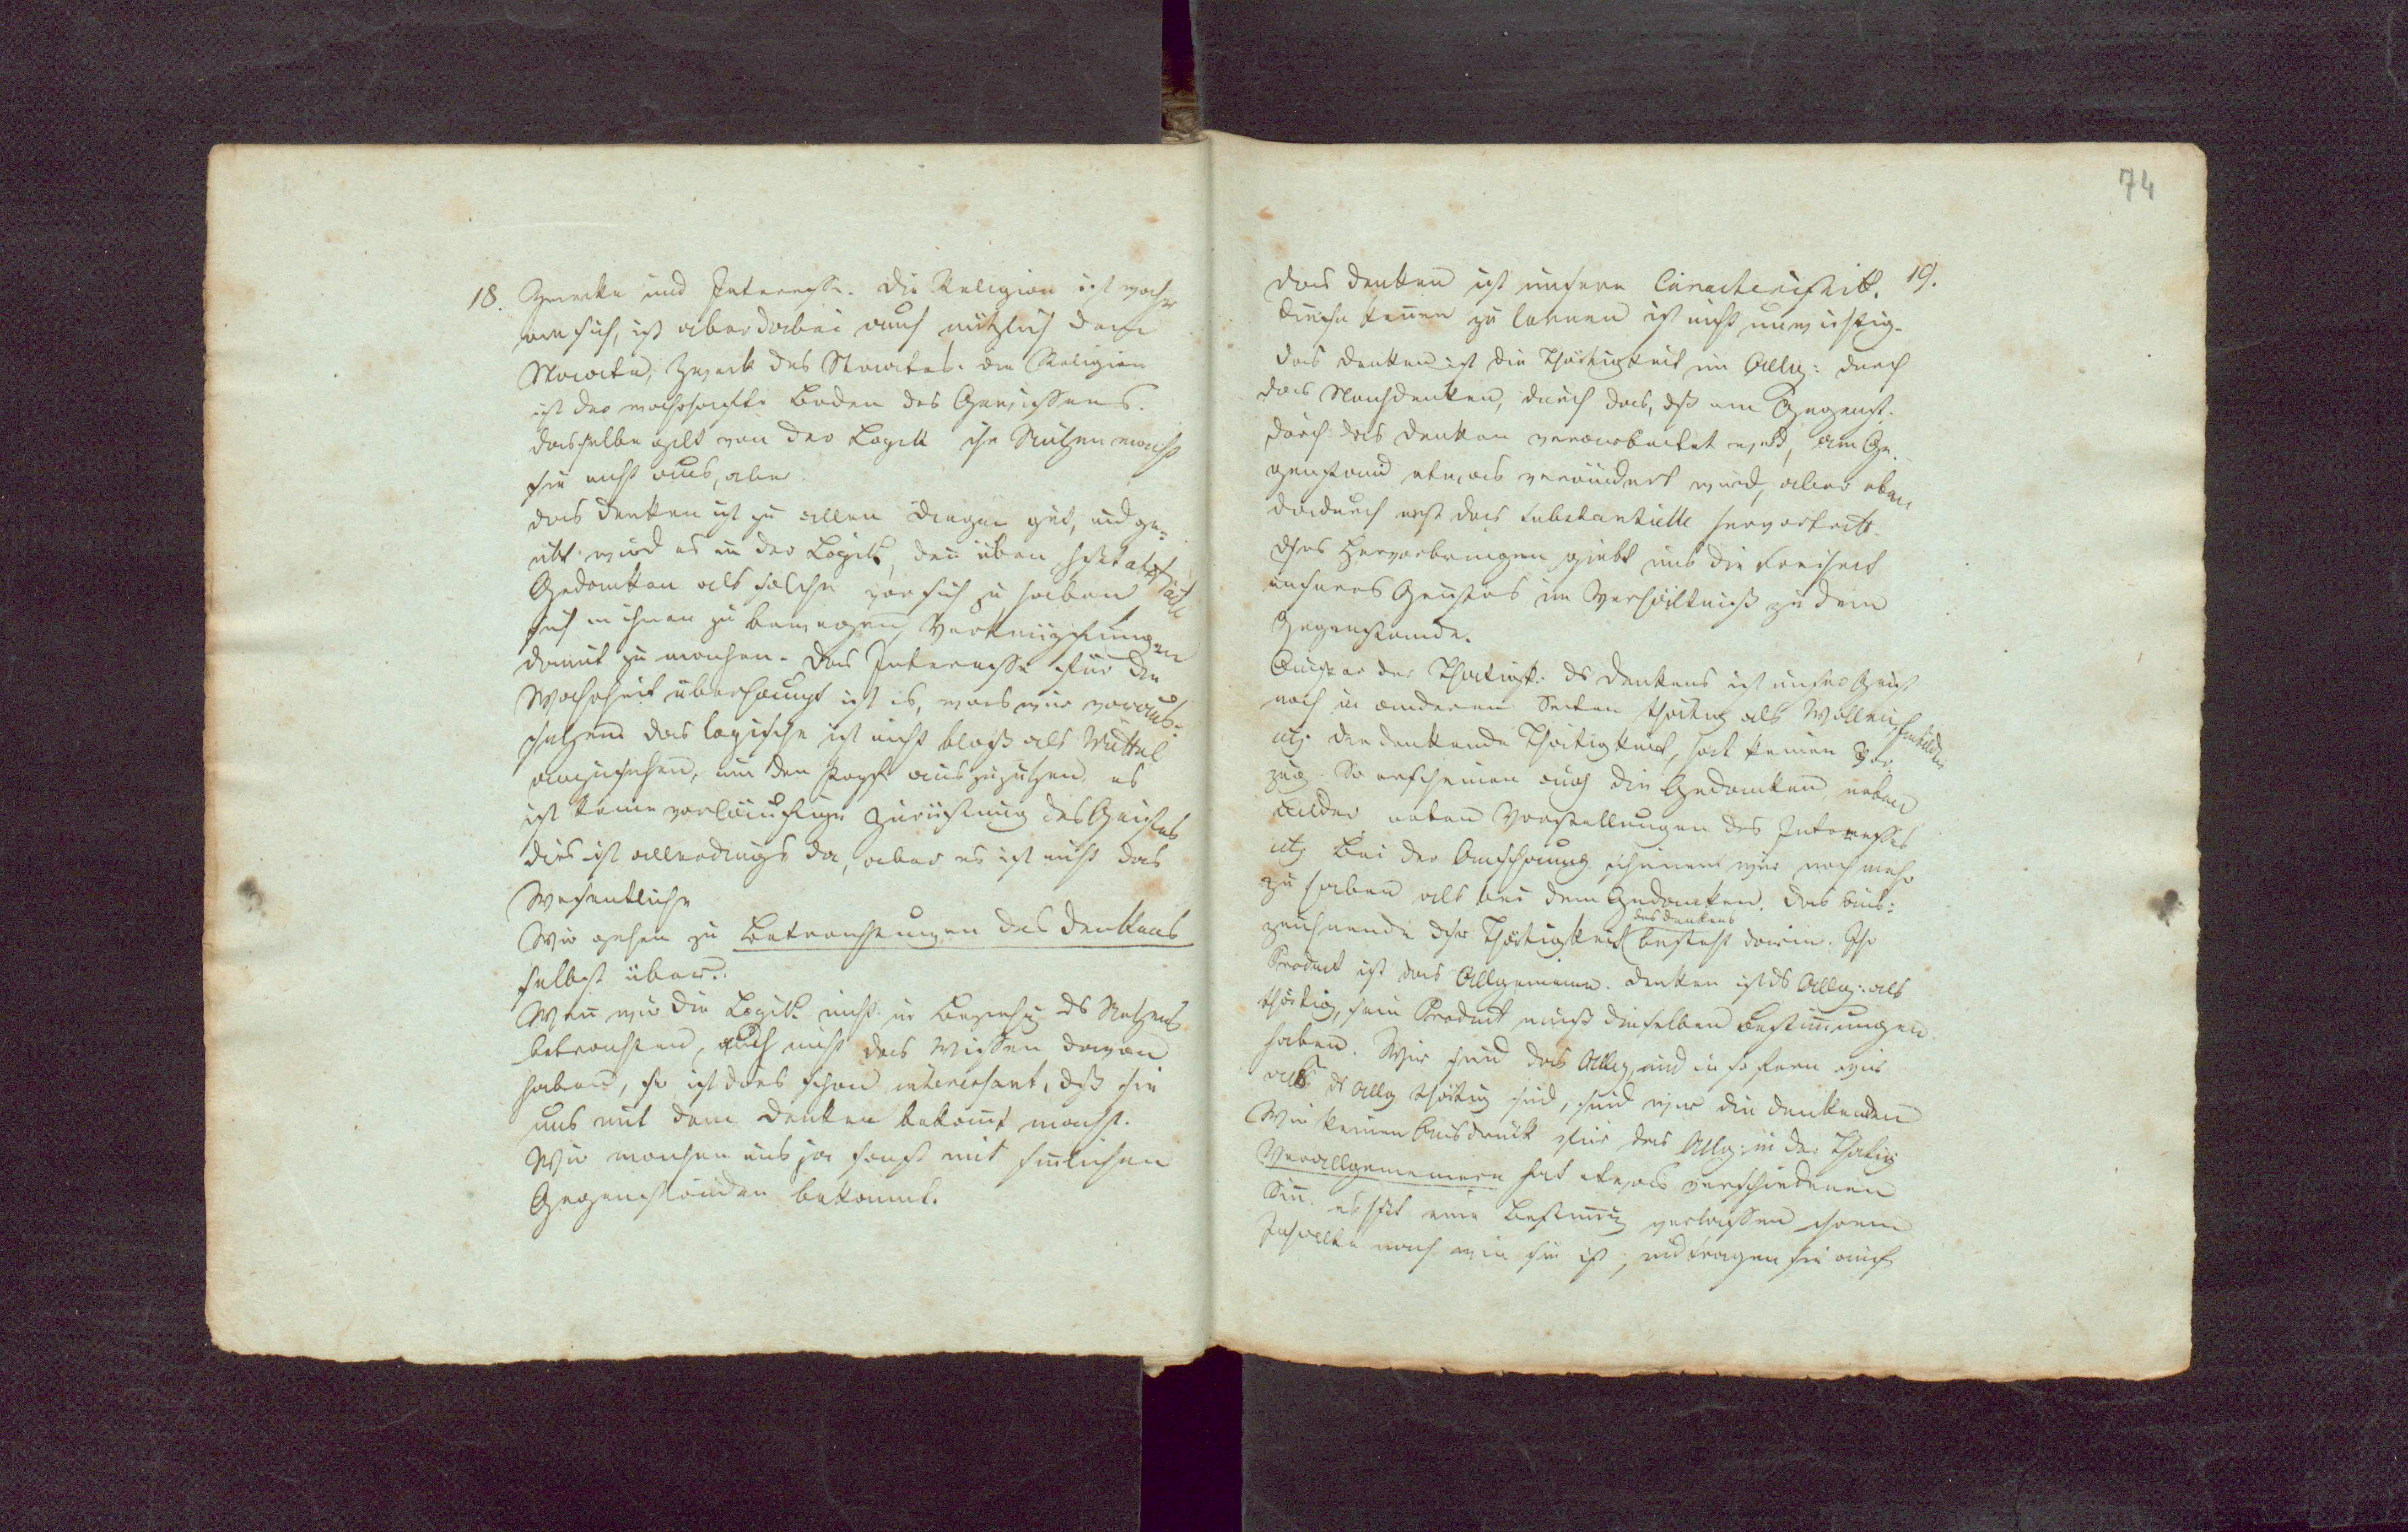 74
18. Zwecke und Interesse. Die Religion ist wahr
an sich, ist aber dabei auch nützlich dem
Staate, Zweck des Staates. die Religion
ist der wahrhafte Boden des Gewissens.
dasselbe gilt von der Logik ihr Nutzen macht
sie nicht aus, aber
das Denken ist zu allen Dingen gut, und ge-
übt wird es in der Logik, den üben heißt abstracte
Gedanken als solche vor sich zu haben
sich in ihnen zu bewegen, Verknüpfungen
damit zu machen. Das Interesse für die
Wahrheit überhaupt ist es, was wir voraus-
setzen das logische ist nicht bloß als Mittel
anzusehen, um den Kopf auszuputzen es
ist keine vorläufige Zurüstung des Geistes
dies ist allerdings da, aber es ist nicht das
Wesentliche
Wir gehen zu Betrachtungen des Denkens
selbst über.
Wenn wir die Logik nicht in Beziehg ds Nutzens
betrachten, auch nicht das Wissen davon
haben, so ist dies schon interessant, dß sie
uns mit dem Denken bekannt macht.
Wir machen uns ja sonst mit sinnlichen
Gegenständen bekannt.
das Denken ist unsere Caracteristik. 19.
kennen zu lernen ist nicht unwichtig.
das Denken ist die Thätigkeit im Allg: durch
das Nachdenken, durch das, dß ein Gegenst.
durch das Denken verarbeitet wird, am Ge-
genstand etwas verändert wird, aber eben
dadurch erst das Substantielle hervortritt.
dses Hervorbringen giebt uns die Freiheit
unseres Geistes im Verhältniß zu dem
Gegenstande.
Ausser der Thätigk: ds Denkens ist unser Geist
noch in anderen Seiten thätig als Wollen,
die denkende Thätigkeit, hat keinen Vor-
zug. So erscheinen auch die Gedanken neben
Bilder neben Vorstellungen des Interesses
Bei der Anschauung scheinen wir noch mehr
zu haben als bei dem Gedanken. Das aus-
zeichnende dser Thätigkeit des Denkens besteht darin. Ihr
Product ist das Allgemeine. Denken ist ds Allg: als
thätig, sein Product muß dieselben Bestimmungen
haben. Wir sind das Allg, und in so fern wir
als ds Allg thätig sind, sind wir die denkenden
Wir keinen Ausdruck für das Allg: in der Thätig
Verallgemeinern hat etwas verschiedenen
Sinn. es heißt eine Bestimmg verlassen ihrem
Inhalte nach wie sie ist, und tragen sie auf